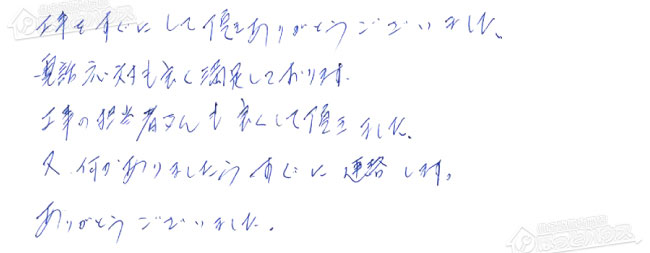 工事をすぐにして頂きありがとうございました。
電話応対も良く満足しております。
工事の担当者さんも良くして頂きました。
又、何かありましたらすぐに連絡します。
ありがとうございました。